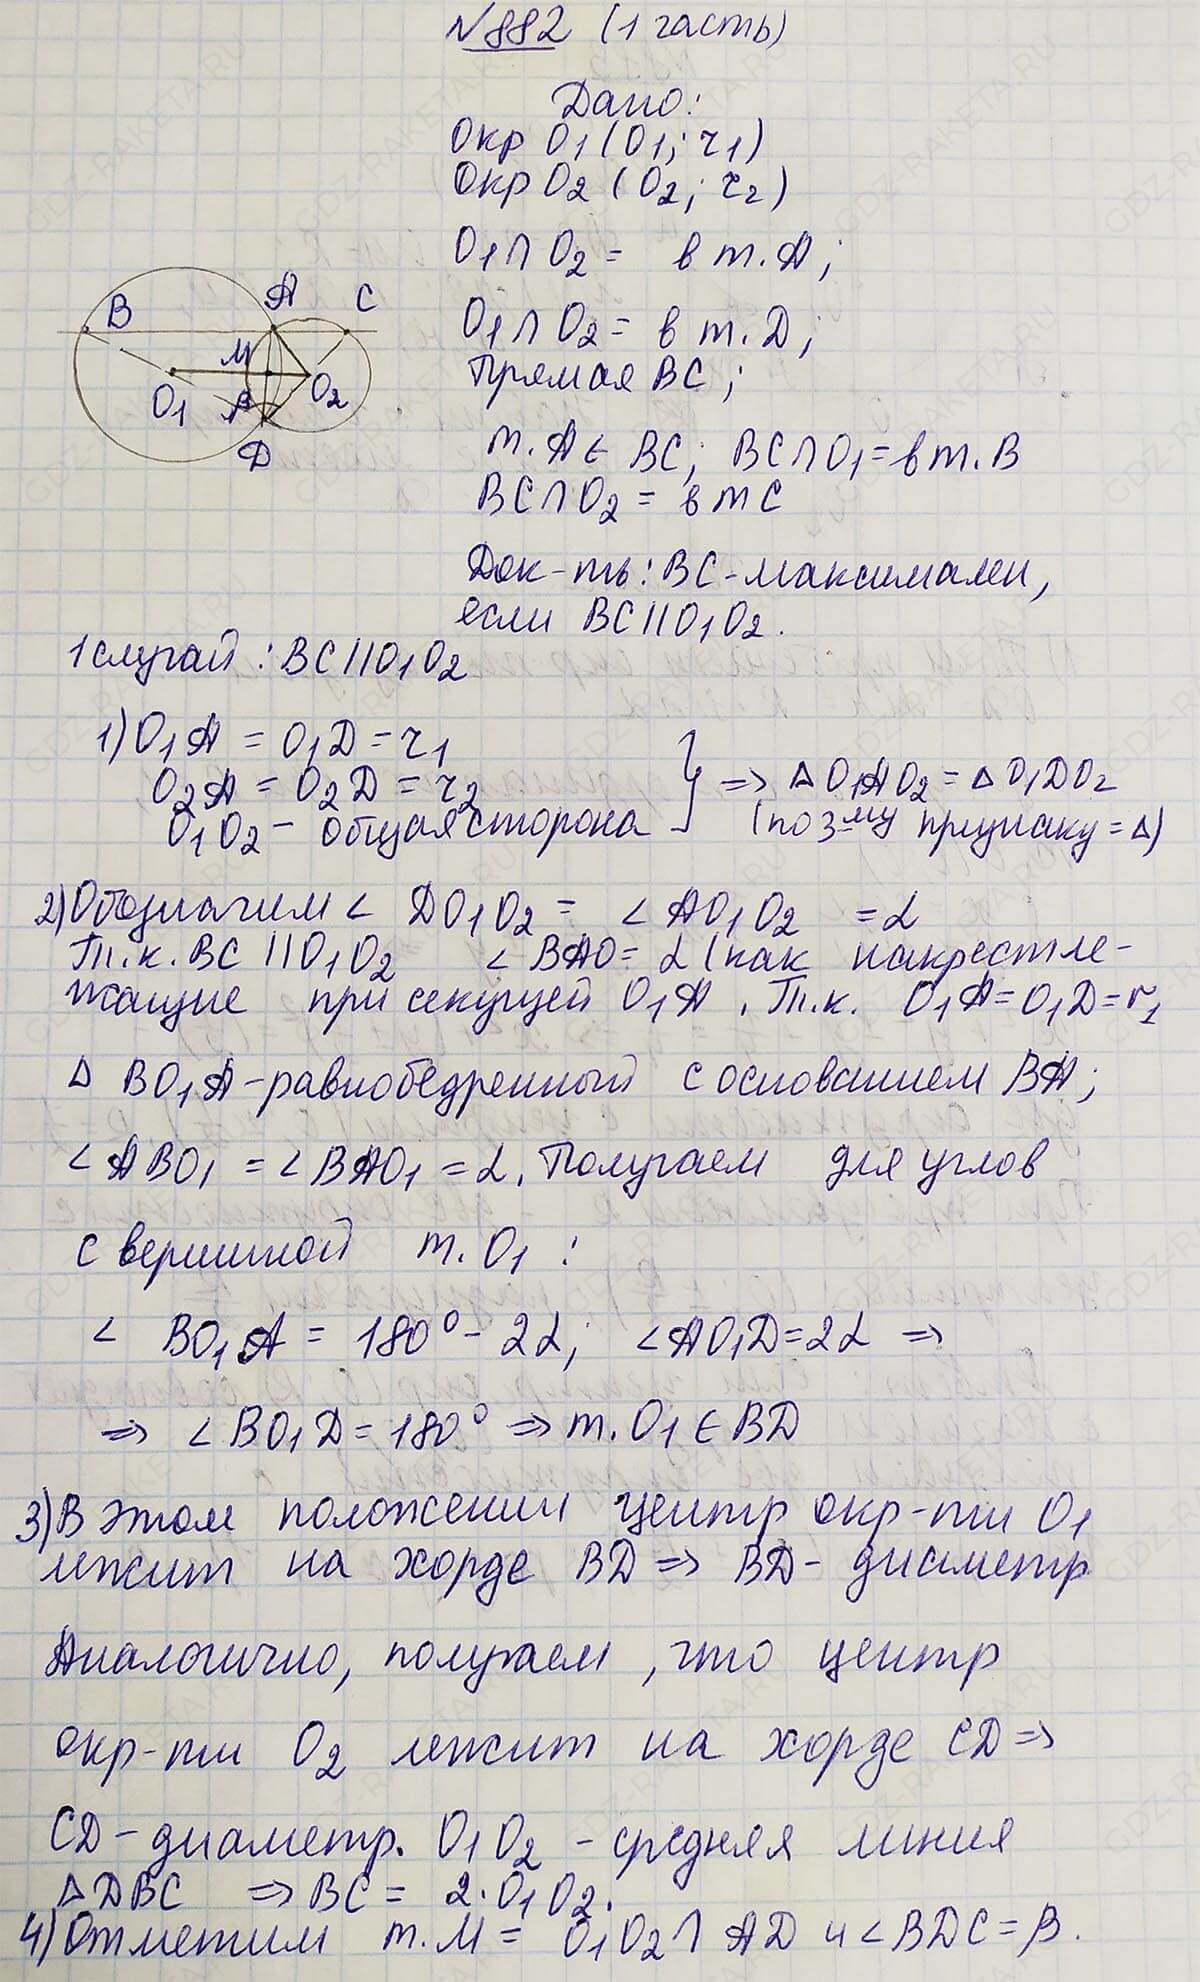 №882 (1 часть)
Дано:
Окр O1 (O1; r1)
Окр O2 (O2; r2)
O1 ∩ O2 = в т. A;
O1 ∩ O2 = в т. D;
Прямая BC;
т. A ∈ BC; BC ∩ O1 = в т. B
BC ∩ O2 = в т C
B
A
C
M
O1
β
O2
D
Док-ть: BC - максимален,
если BC || O1O2.
1 случай: BC || O1O2
1) O1A = O1D = r1
O2A = O2D = r2
O1O2 - общая сторона
=> Δ O1AO2 = Δ O1DO2
(по 3-му признаку = Δ)
2) Обозначим ∠ DO1O2 = ∠ AO1O2 = α
Т.к. BC || O1O2 ∠ BAO = α (как накрестле-
жащие при секущей O1A. Т.к. O1A = O1D = r1
Δ BO1A - равнобедренный с основанием BA;
∠ ABO1 = ∠ BAO1 = α. Получаем для углов
с вершиной т. O1 :
∠ BO1A = 180° - 2α; ∠ AO1D = 2α =>
=> ∠ BO1D = 180° => т. O1 ∈ BD
3) В этом положении центр окр-ти O1
лежит на хорде BD => BD - диаметр
Аналогично, получаем, что центр
окр-ти O2 лежит на хорде CD =>
CD - диаметр. O1O2 - средняя линия
Δ DBC => BC = 2·O1O2.
4) Отметим т. M = O1O2 ∩ AD и ∠ BDC = β.
GDZ-RAKETA.RU